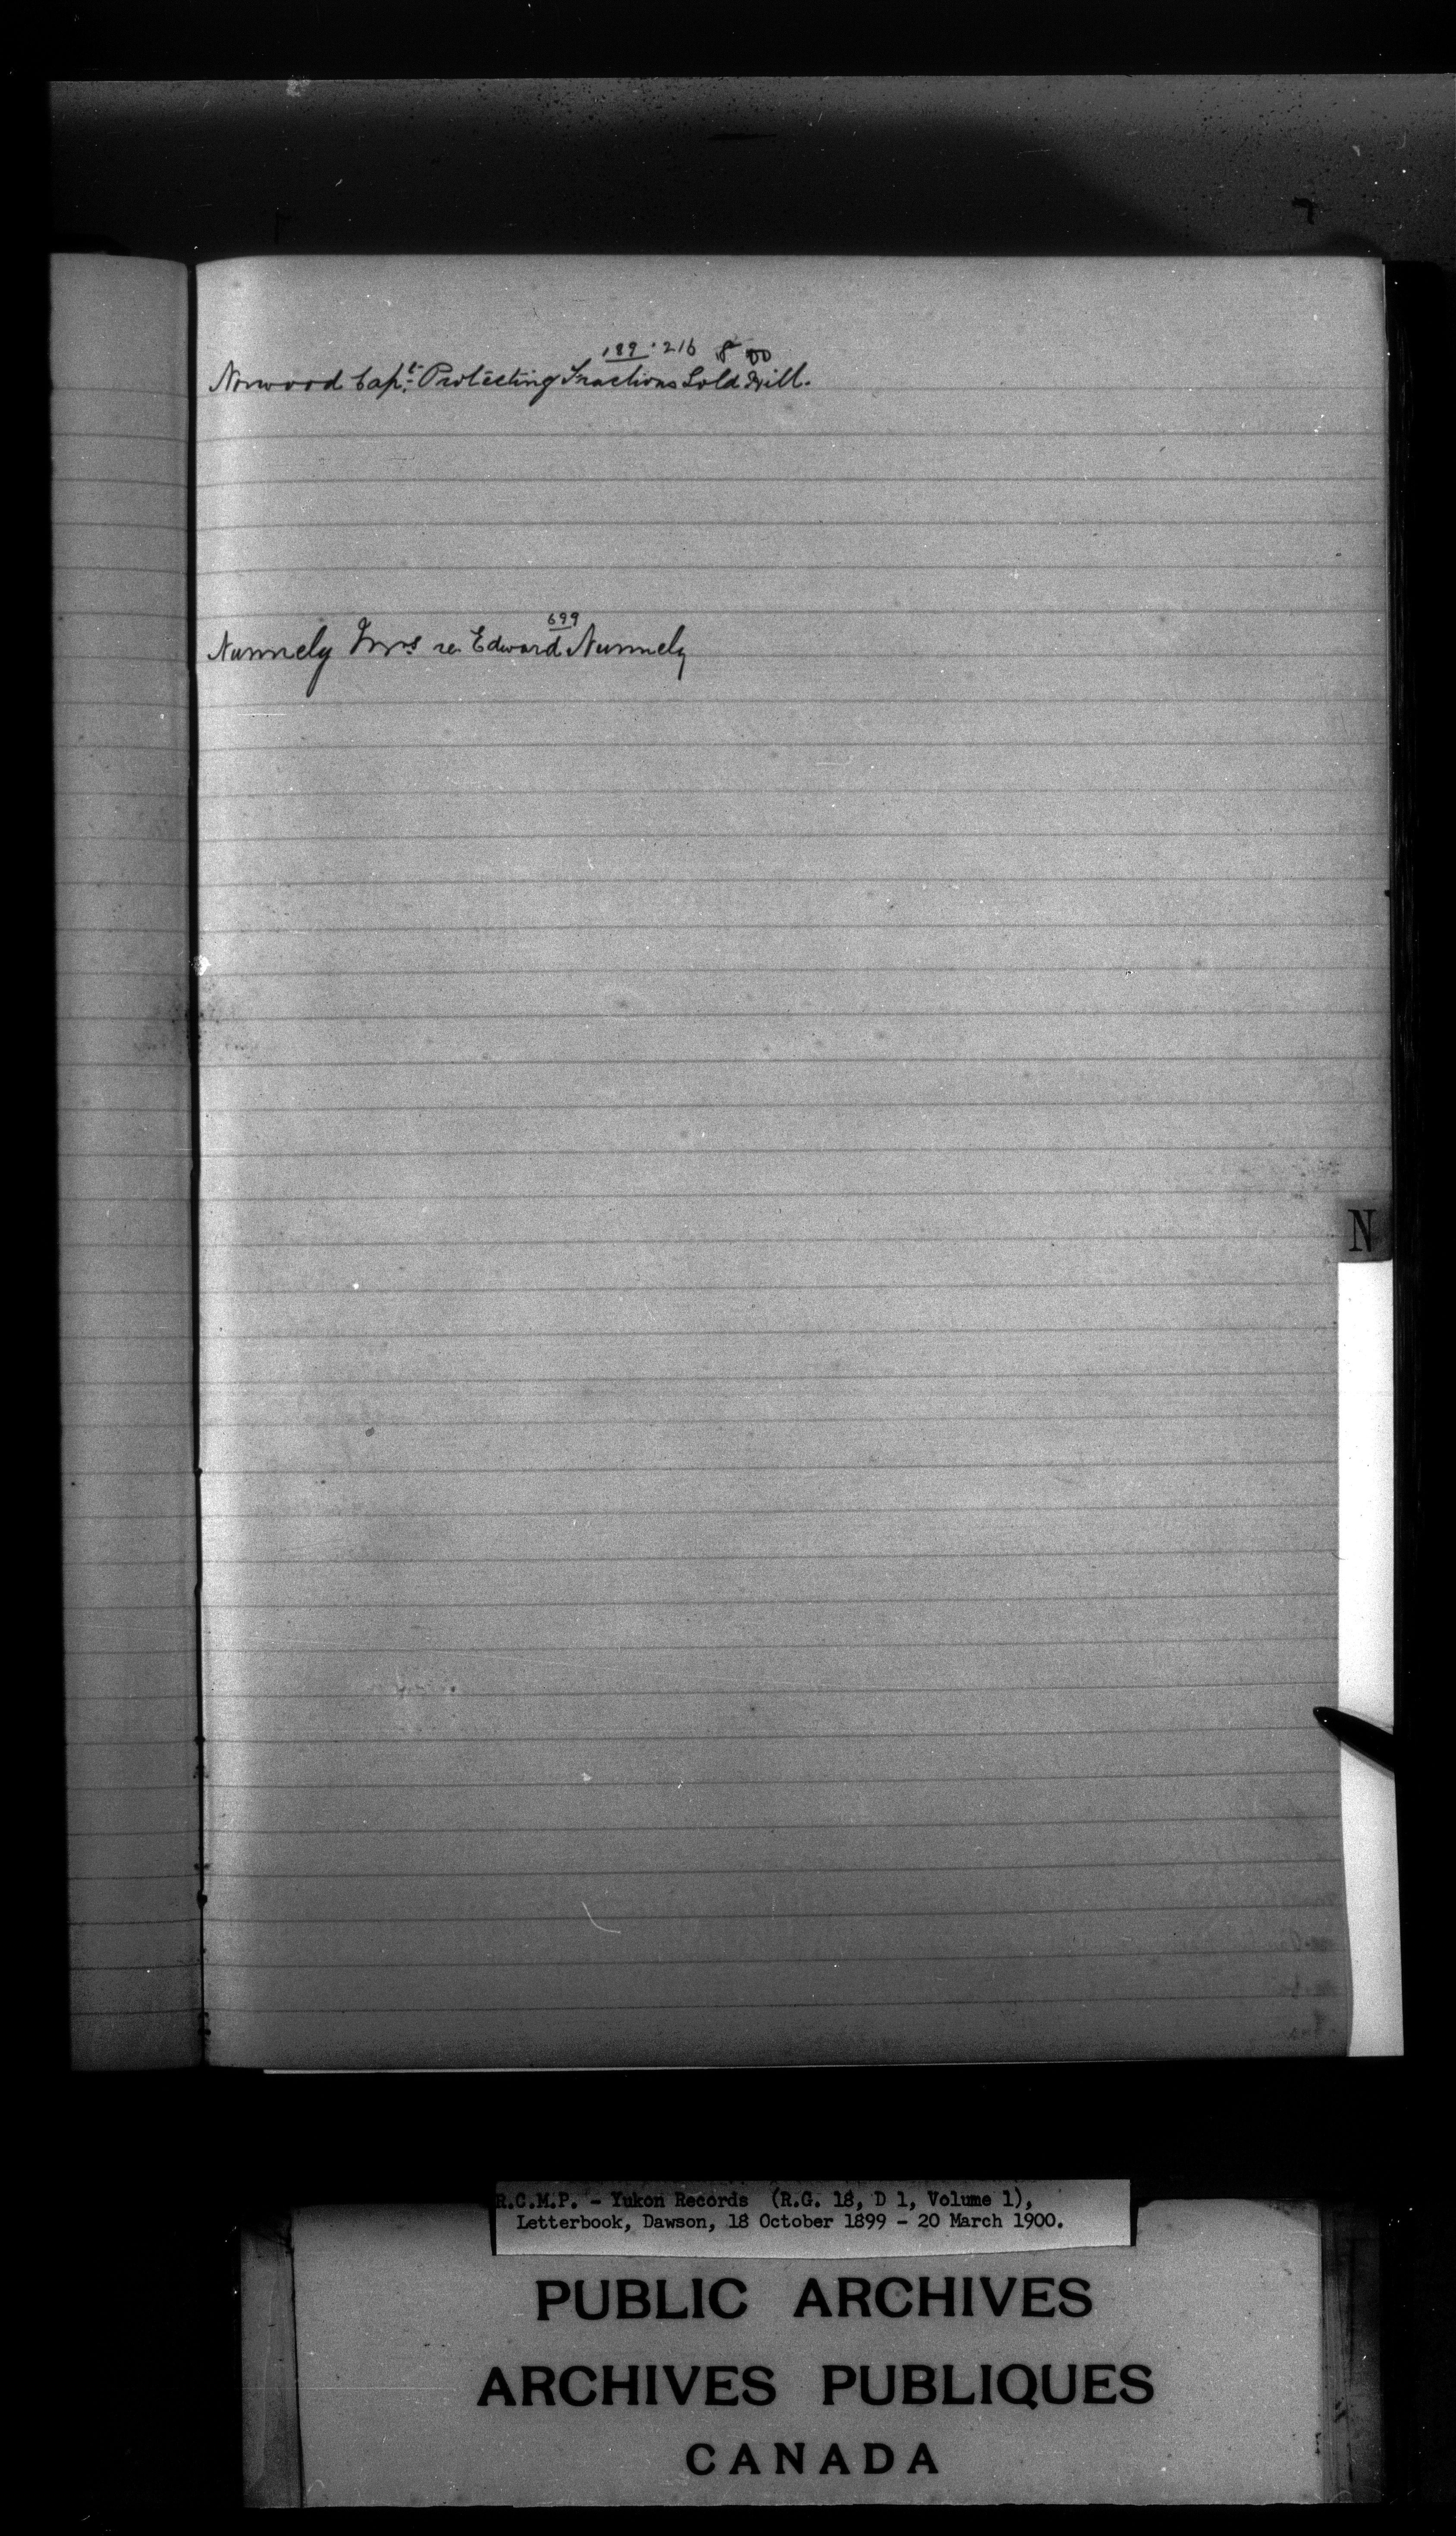 189 · 216 8 00
Norwood Capt. Protecting Fractions Gold Hill.
699
Nunnely Mrs re Edward Nunnely
N
R.C.M.P. - Yukon Records (R.G. 18, D 1, Volume 1),
Letterbook, Dawson, 18 October 1899 - 20 March 1900.
PUBLIC ARCHIVES
ARCHIVES PUBLIQUES
CANADA